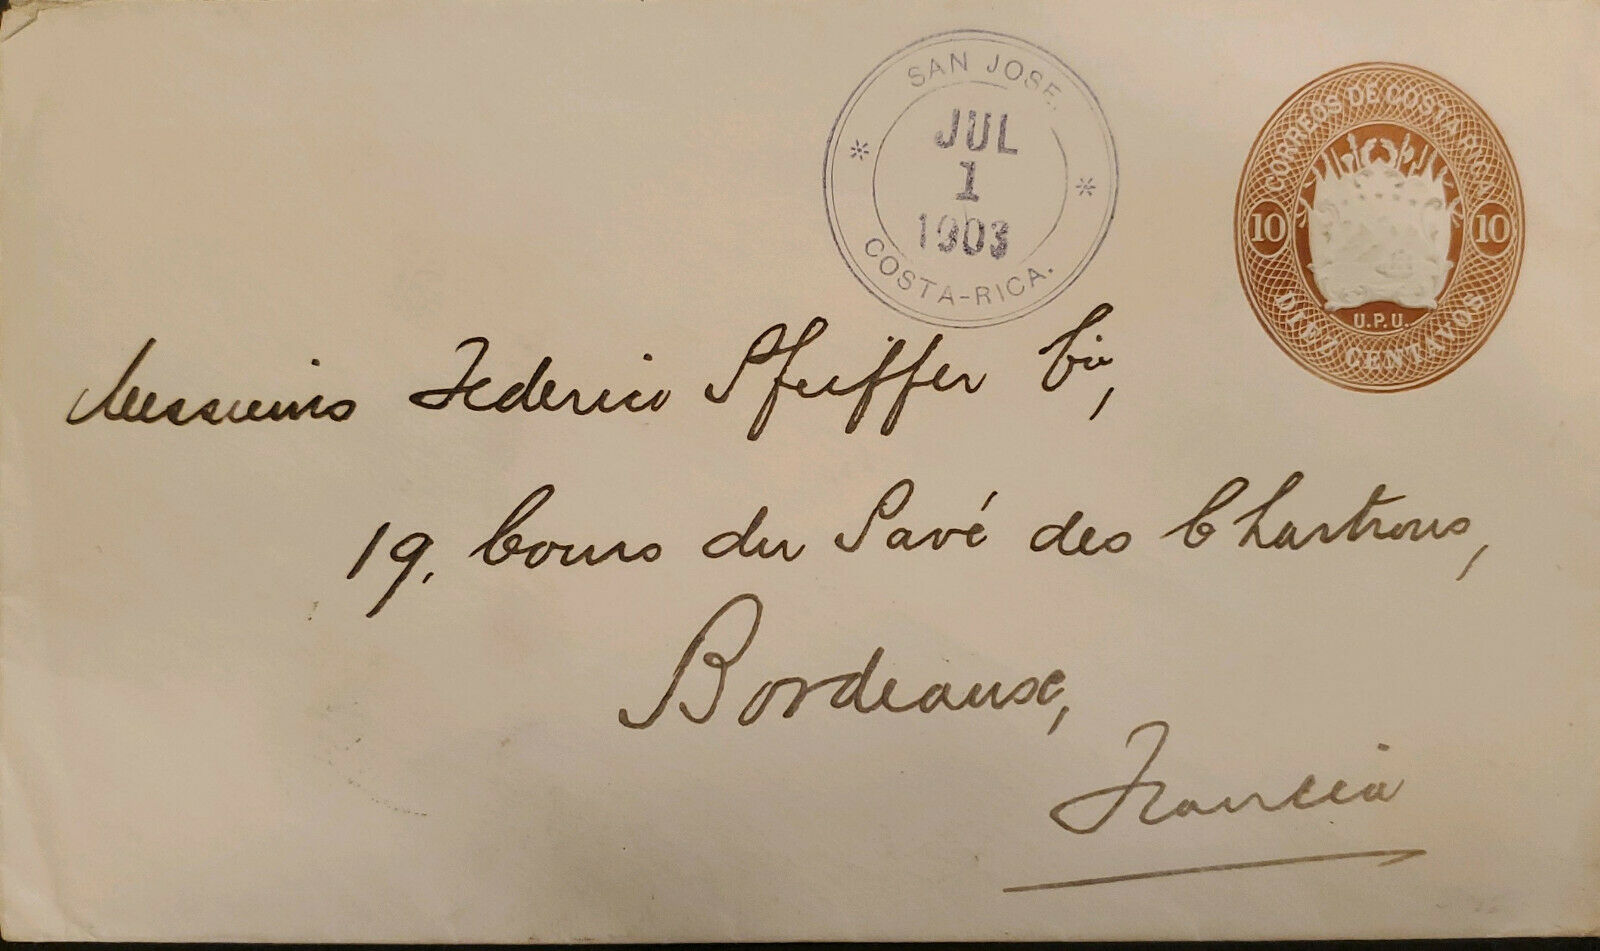 SAN JOSE.
JUL
1
1903
COSTA-RICA.
CORREOS DE COSTA RICA
10 10
U.P.U.
DIEZ CENTAVOS
Messieurs Federico Pfeiffer Cia,
19, Cours du Pavé des Chartrons,
Bordeaux,
Francia